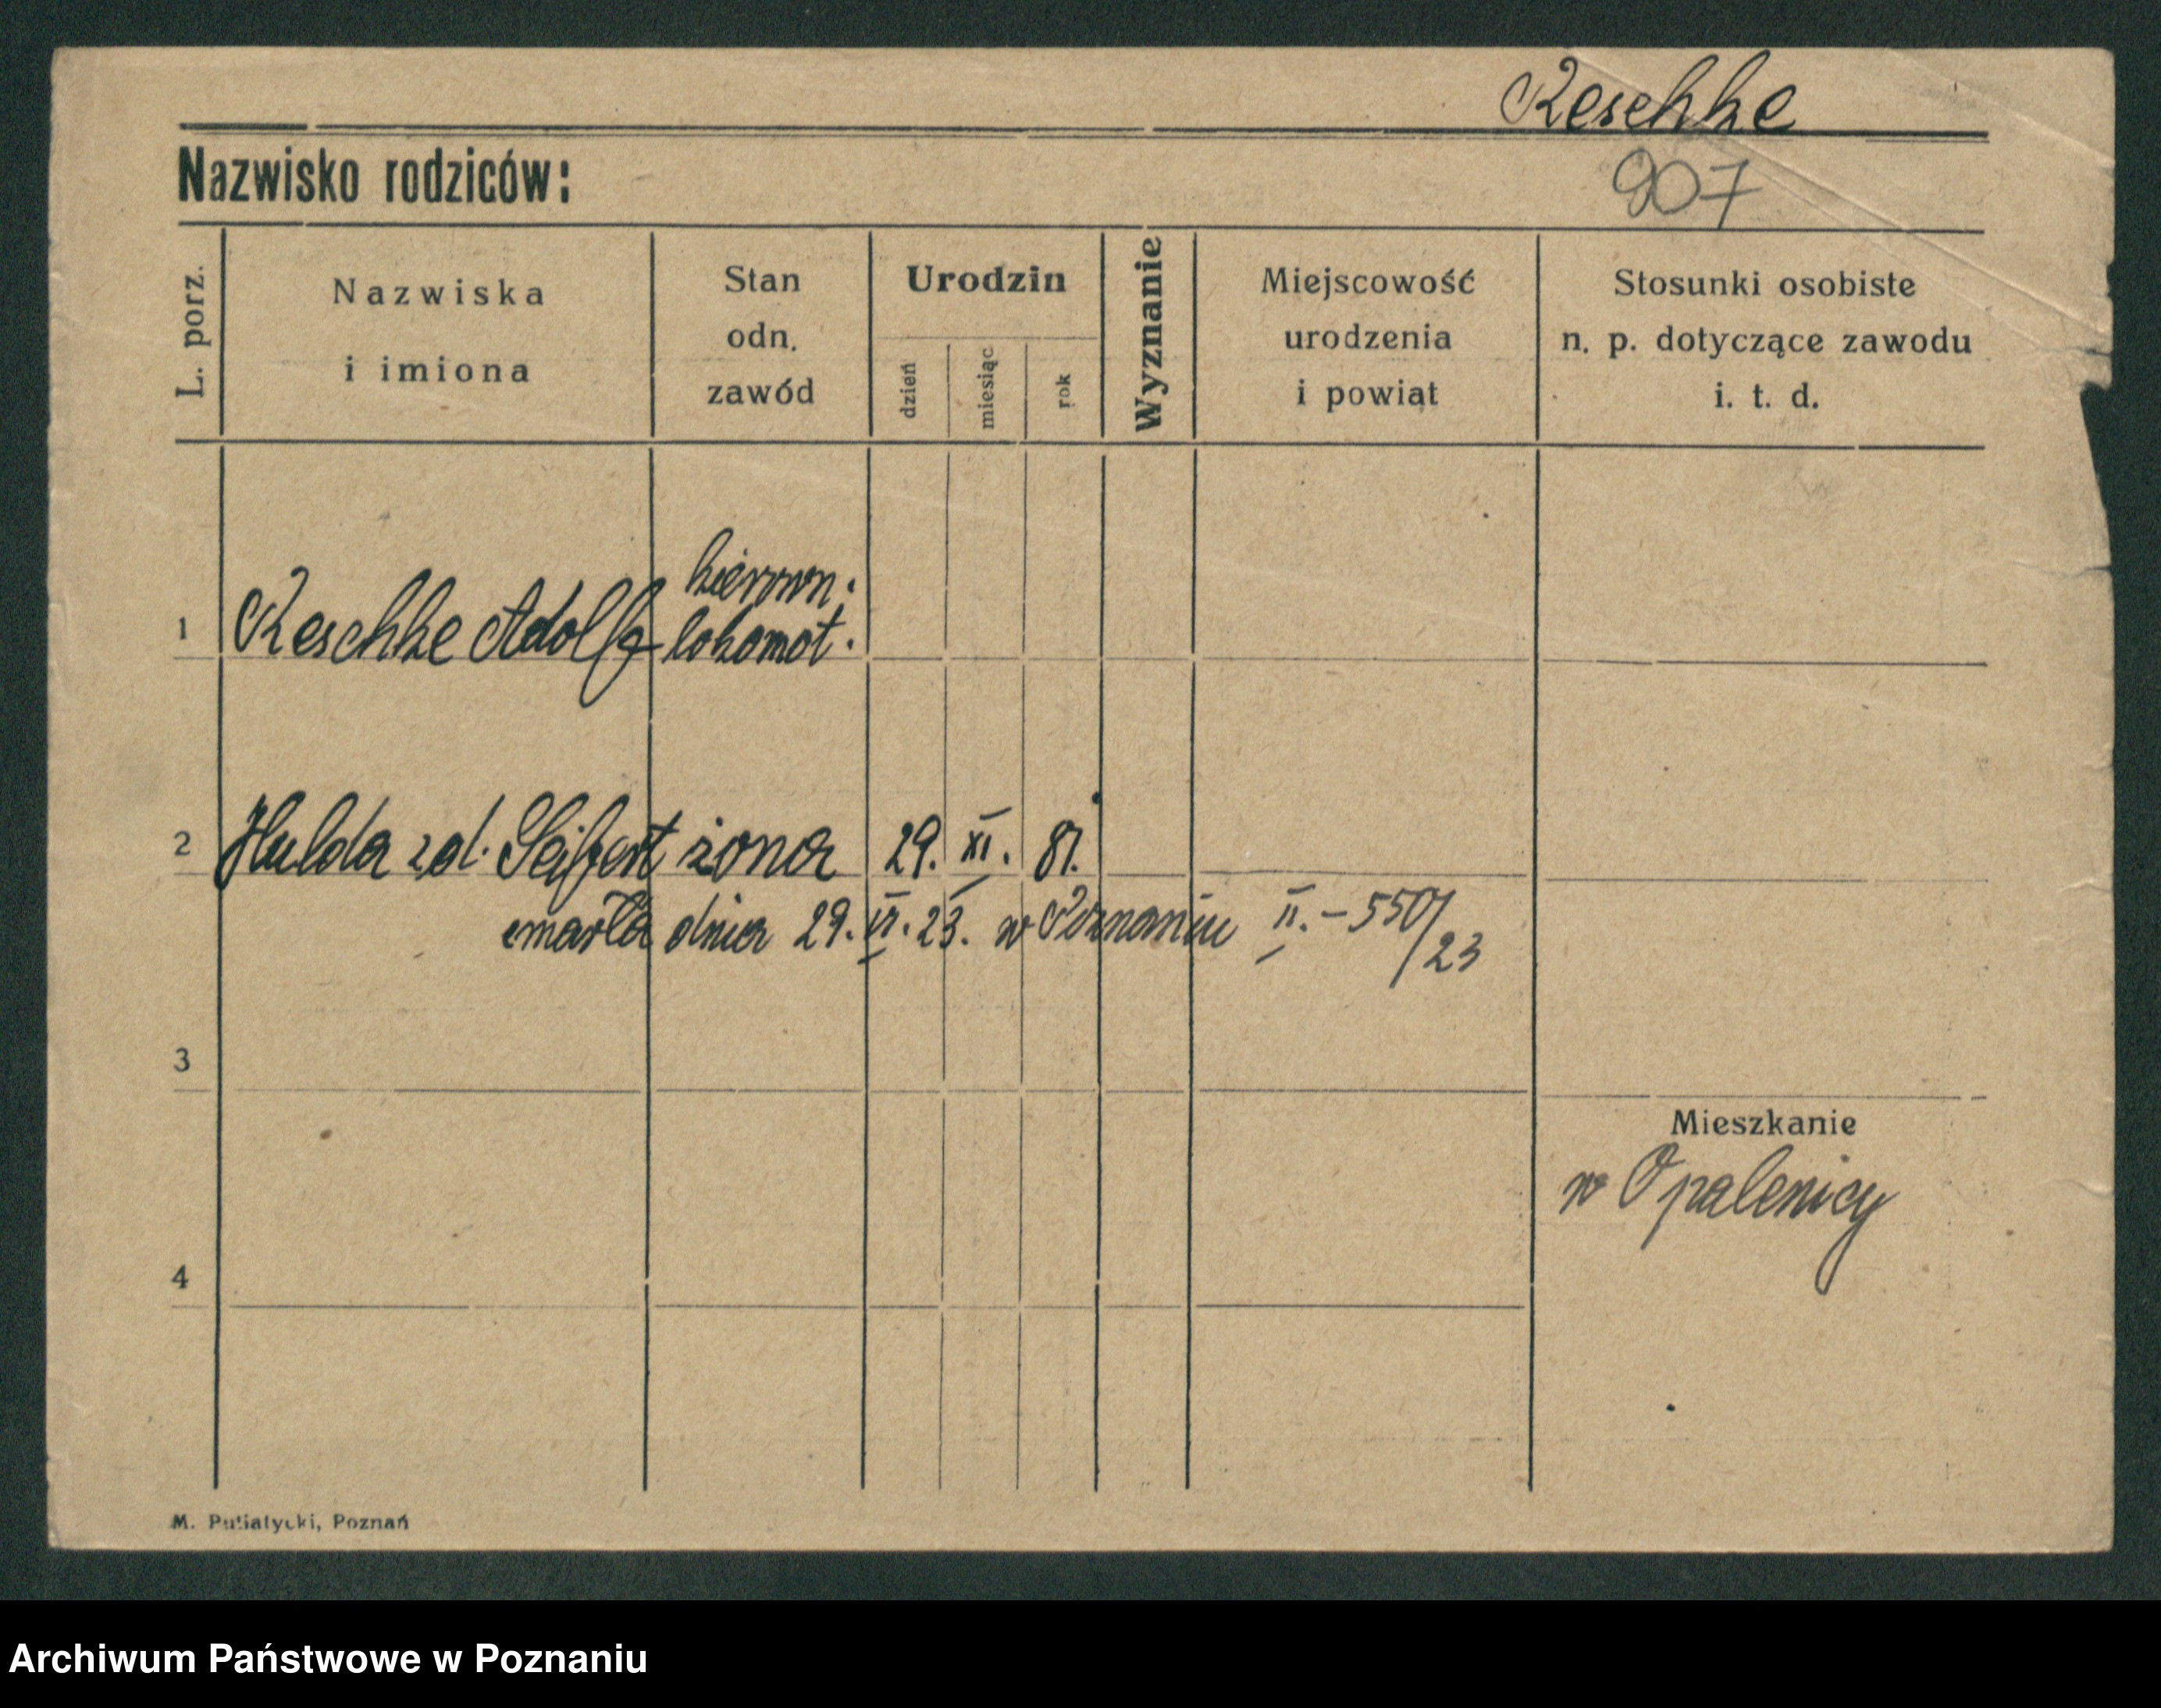 Reschke
Nazwisko rodziców:
907
L. porz.
Nazwiska
i imiona
Stan
odn.
zawód
Urodzin
dzień
miesiąc
rok
Wyznanie
Miejscowość
urodzenia
i powiat
Stosunki osobiste
n. p. dotyczące zawodu
i. t. d.
kierown.
1 Reschke Adolf lokomot.
2 Hulda zd. Seifert żona 29. XI. 81.
zmarła dnia 29. VI. 23. w Poznaniu II. – 550/23
3
Mieszkanie
w Opalenicy
4
M. Putiatycki, Poznań
Archiwum Państwowe w Poznaniu